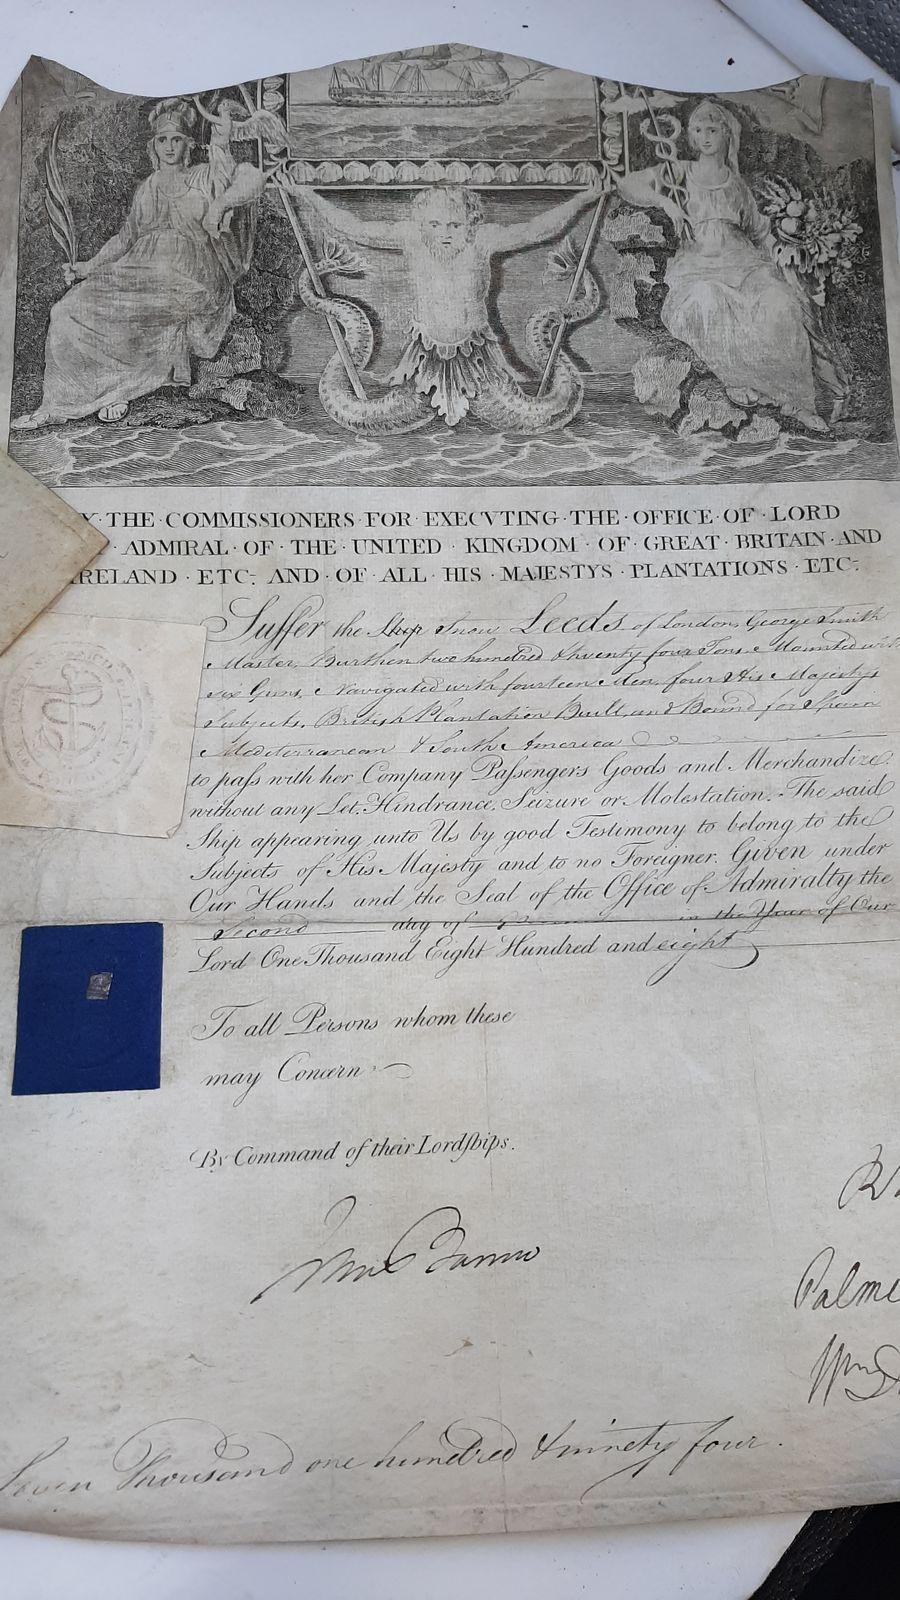 Y·THE·COMMISSIONERS·FOR·EXECVTING·THE·OFFICE·OF·LORD
·ADMIRAL·OF·THE·UNITED·KINGDOM·OF·GREAT·BRITAIN·AND
IRELAND·ETC: AND·OF·ALL·HIS·MAJESTYS·PLANTATIONS·ETC:
Suffer the Ship Snow Leeds of London, George Smith
Master, Burthen two hundred & twenty four Tons, Mounted with
six Guns, Navigated with fourteen Men, four His Majestys
Subjects, British Plantation Built, and Bound for Spain
Mediterranean & South America
to paſs with her Company Paſsengers Goods and Merchandize
without any Let, Hindrance, Seizure or Molestation. The said
Ship appearing unto Us by good Testimony to belong to the
Subjects of His Majesty and to no Foreigner. Given under
Our Hands and the Seal of the Office of Admiralty the
Second day of in the Year of Our
Lord One Thousand Eight Hundred and eight
To all Persons whom these
may Concern
By Command of their Lordſhips.
Palme
Wm
Seven Thousand one hundred & ninety four.